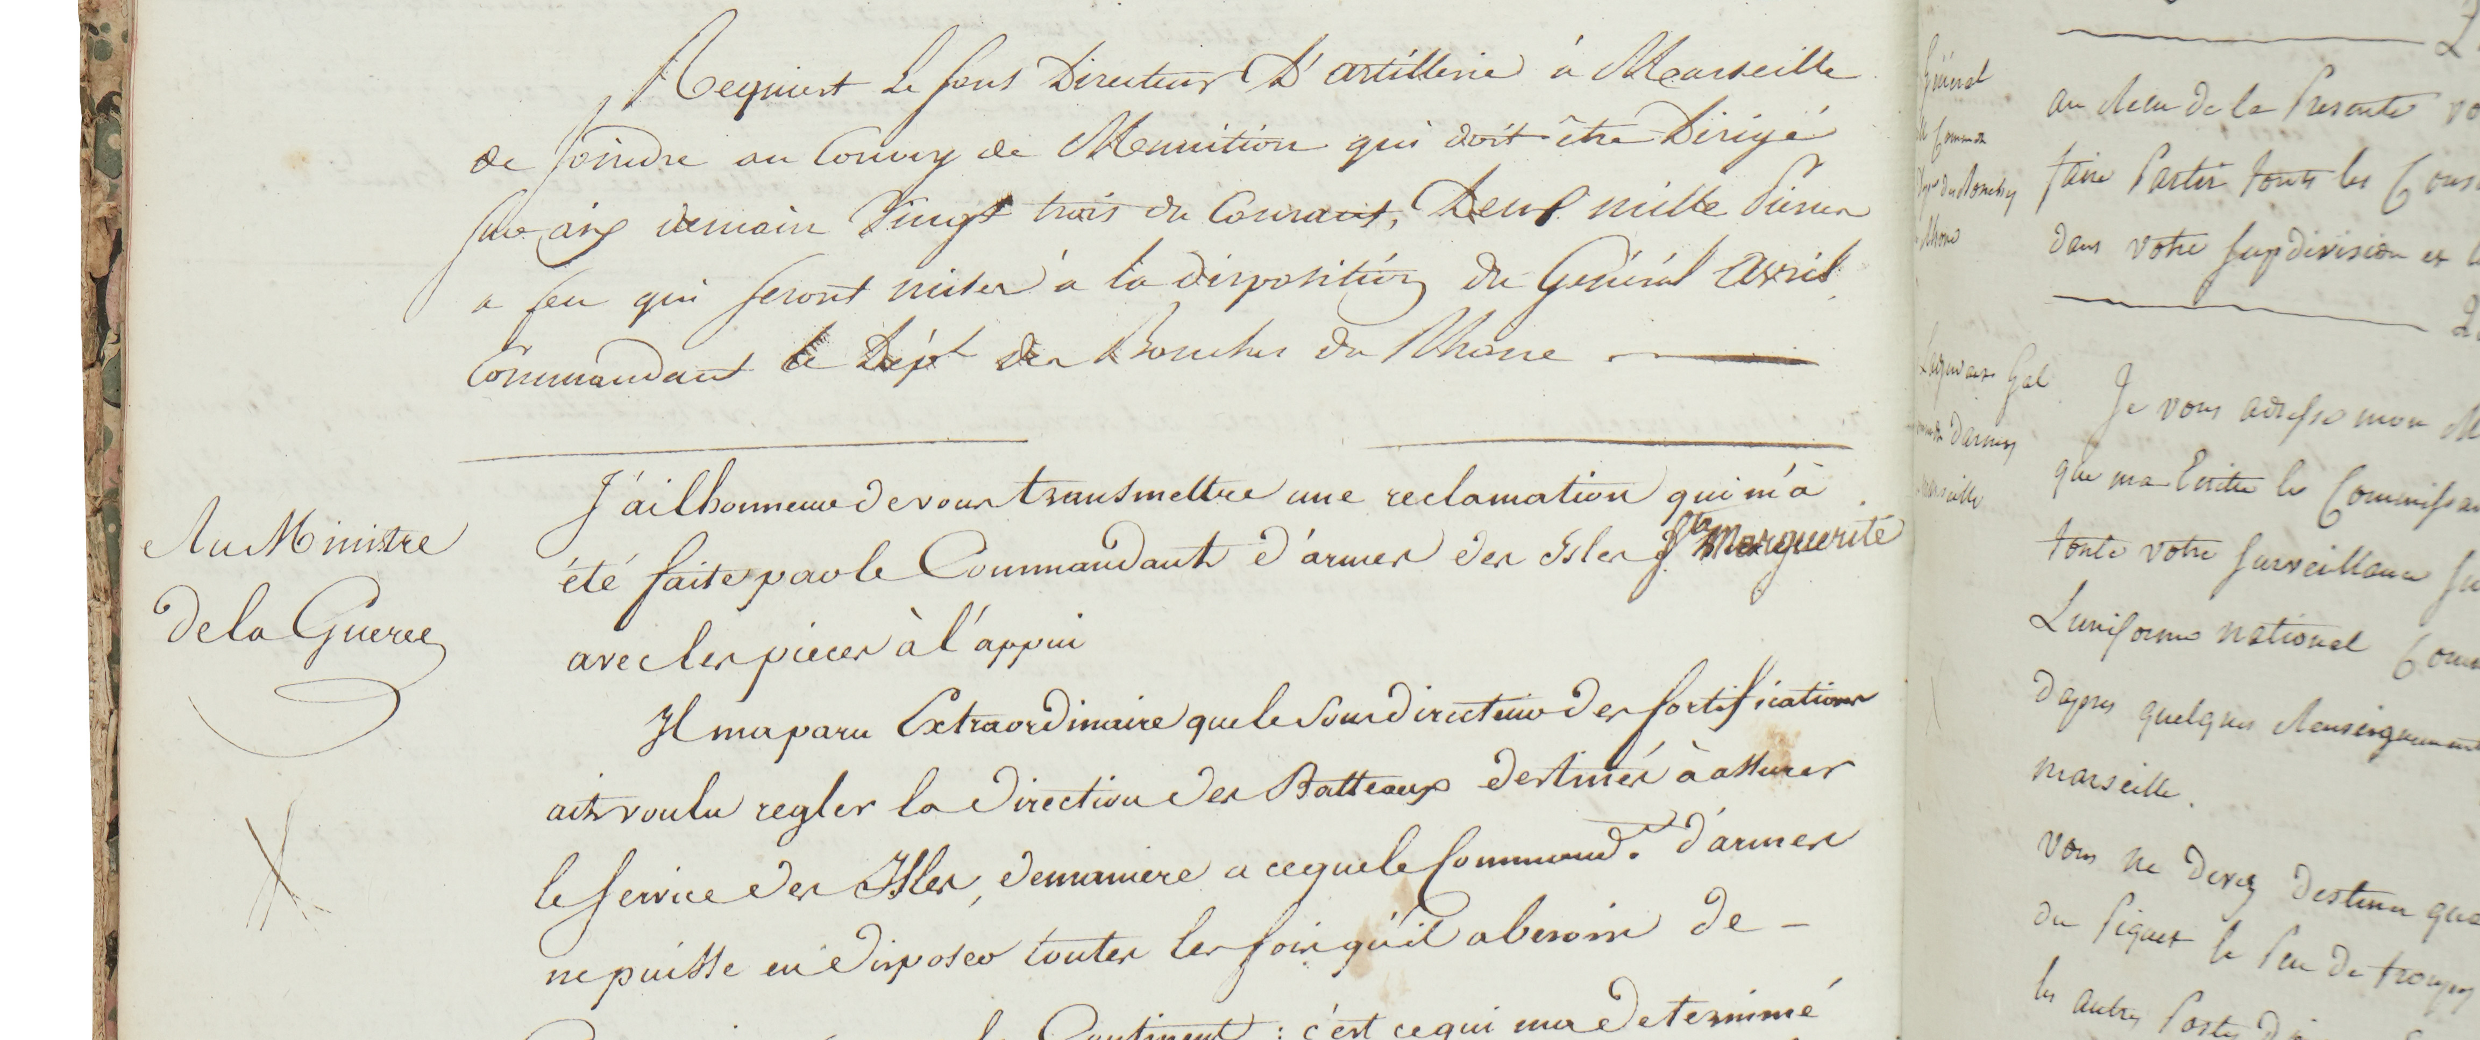 Requiert Le sous Directeur D'artillerie à Marseille
de Joindre au Convoy de Munition qui doit être Dirigé
sur aix demain Vingt trois du Courant, Deux mille Pierres
a feu qui seront mises à la disposition du Général Avril
Commandant le Dépt des Bouches du Rhone
Au Ministre
de la Guerre
J'ai lhonneur de vous transmettre une reclamation qui m'à
été faite par le Commandant d'armes des Isles Ste Marguerite
avec les pieces à l'appui
Il ma paru Extraordinaire que le Sous directeur des fortifications
ait voulu regler la direction des Batteaux destinés à assurer
le service des Isles, demaniere a ceque le Command.t d'armes
ne puisse en disposer toutes les fois qu'il a besoin de -
le Continent : c'est ce qui ma determiné
Général
du Rhone
au Recu de la Presente vo
faire Partir touts les Cons
dans votre supdivision et l
Gal
d'armes
marseille
Je vous adresse mon
que ma Ecrite le Commissa
toute votre surveillance su
L'uniforme national Comm
Dapres quelques Renseignement
marseille.
Vous ne devez destiner que
du Piquet le Peu de troupes
les autres Postes